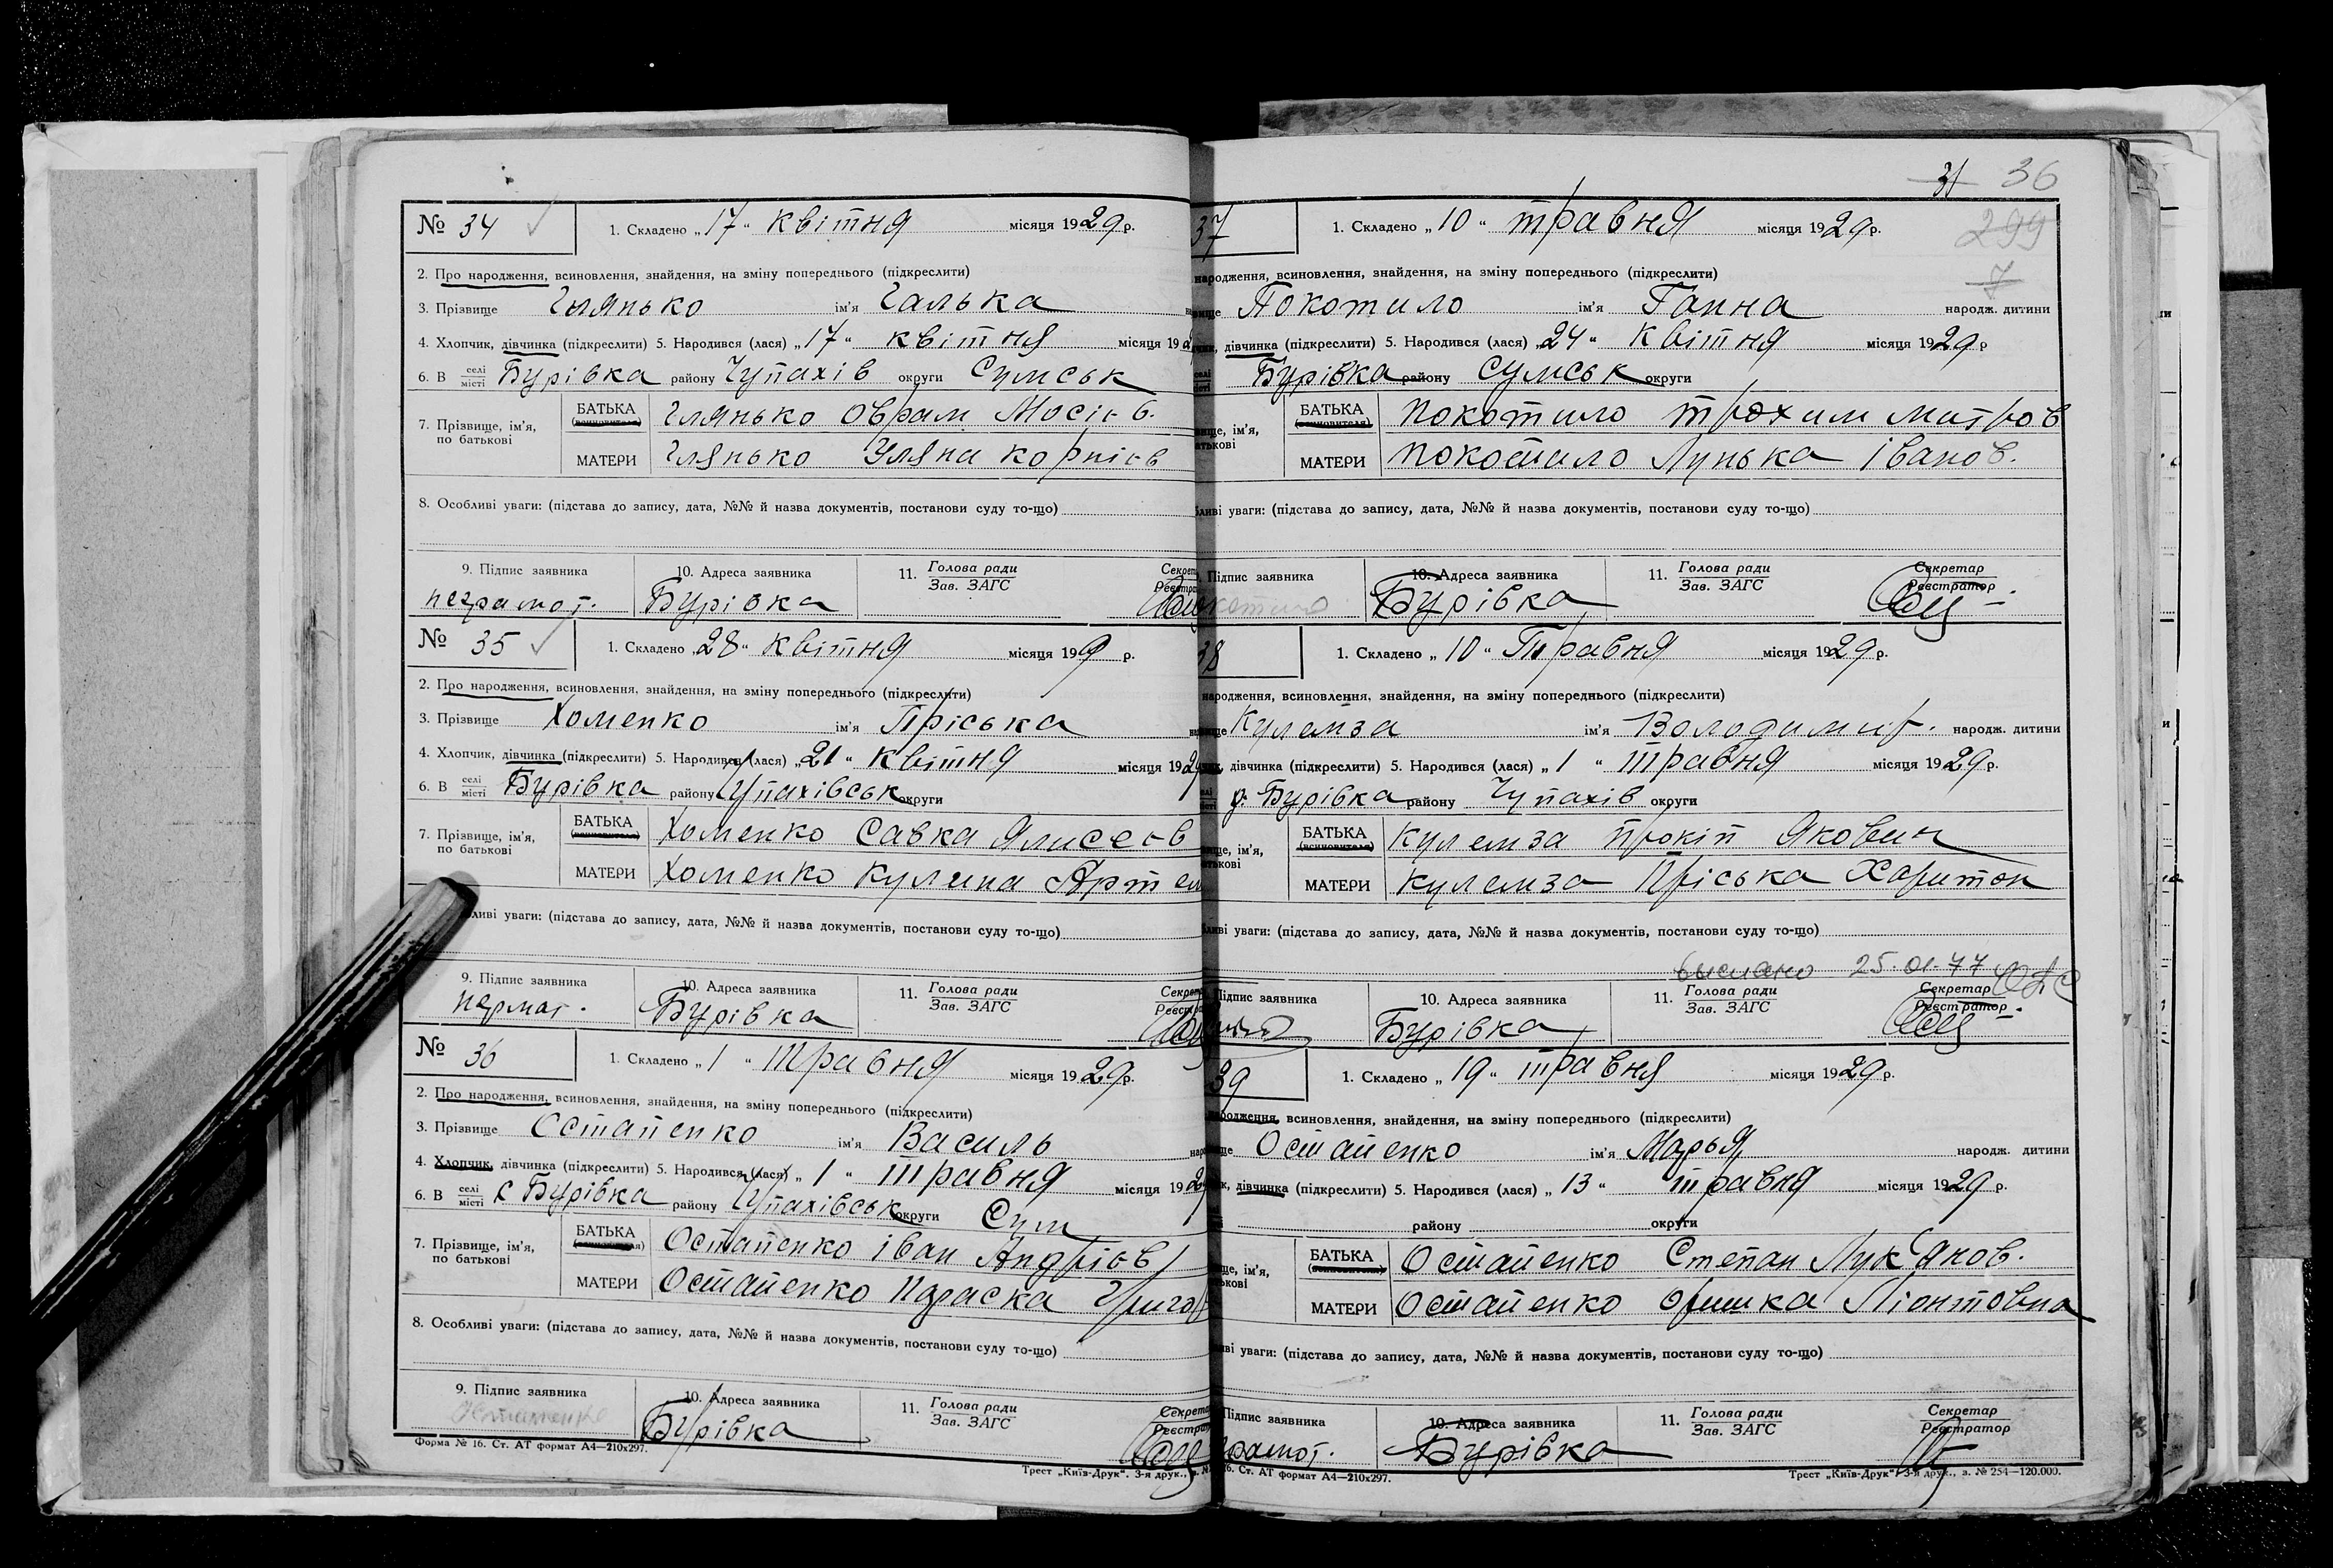 31 36
299
7
№ 34 1. Складено „17“ квітня місяця 1929 р.
2. Про народження, всиновлення, знайдення, на зміну попереднього (підкреслити)
3. Прізвище Глянько ім'я Галька
4. Хлопчик, дівчинка (підкреслити) 5. Народився (лася) „17“ квітня місяця 19
6. В селі місті Бурівка району Чупахів округи Сумськ
7. Прізвище, ім'я, по батькові БАТЬКА (всиновителя) Глянько Оврам Мосієв.
МАТЕРИ Глянько Уляна Корнієв
8. Особливі уваги: (підстава до запису, дата, №№ й назва документів, постанови суду то-що)
9. Підпис заявника 10. Адреса заявника 11. Голова ради Зав. ЗАГС
неграмот. Бурівка
№ 35 1. Складено „28“ квітня місяця 199 р.
2. Про народження, всиновлення, знайдення, на зміну попереднього (підкреслити)
3. Прізвище Хоменко ім'я Пріська
4. Хлопчик, дівчинка (підкреслити) 5. Народився (лася) „21“ квітня місяця 1929
6. В селі місті Бурівка району Чупахівськ округи
7. Прізвище, ім'я, по батькові БАТЬКА (всиновителя) Хоменко Савка Ялисеєв
МАТЕРИ Хоменко Кулина Артем
ливі уваги: (підстава до запису, дата, №№ й назва документів, постанови суду то-що)
9. Підпис заявника 10. Адреса заявника 11. Голова ради Зав. ЗАГС
Бурівка
№ 36 1. Складено „1“ травня місяця 1929 р.
2. Про народження, всиновлення, знайдення, на зміну попереднього (підкреслити)
3. Прізвище Остапенко ім'я Василь
4. Хлопчик, дівчинка (підкреслити) 5. Народився (лася) „1“ травня місяця 1929
6. В селі місті с Бурівка району Чупахівськ округи Сум
7. Прізвище, ім'я, по батькові БАТЬКА (всиновителя) Остапенко Іван Андрієв
МАТЕРИ Остапенко Параска Григор
8. Особливі уваги: (підстава до запису, дата, №№ й назва документів, постанови суду то-що)
9. Підпис заявника 10. Адреса заявника 11. Голова ради Зав. ЗАГС
Остапенко Бурівка
Форма № 16. Ст. АТ формат А4—210x297.
Трест „Київ-Друк“. 3-я друк.,
37 1. Складено „10“ травня місяця 1929 р.
народження, всиновлення, знайдення, на зміну попереднього (підкреслити)
Покотило ім'я Ганна народж. дитини
дівчинка (підкреслити) 5. Народився (лася) „24“ квітня місяця 1929 р
Бурівка району Сумськ округи
ім'я, БАТЬКА (всиновителя) Покотило Трохим Митров
МАТЕРИ Покотило Лунька Іванов.
уваги: (підстава до запису, дата, №№ й назва документів, постанови суду то-що)
Підпис заявника 10. Адреса заявника 11. Голова ради Зав. ЗАГС Секретар Реєстратор
Бурівка
38 1. Складено „10“ Травня місяця 1929 р.
народження, всиновлення, знайдення, на зміну попереднього (підкреслити)
Кулемза ім'я Володимир. народж. дитини
дівчинка (підкреслити) 5. Народився (лася) „1“ травня місяця 1929 р.
Бурівка району Чупахів округи
ім'я, БАТЬКА (всиновителя) Кулемза Прокіп Якович
МАТЕРИ Кулемза Пріська Харитон
уваги: (підстава до запису, дата, №№ й назва документів, постанови суду то-що)
выслано 25.01.77
Підпис заявника 10. Адреса заявника 11. Голова ради Зав. ЗАГС Секретар Реєстратор
Бурівка
39 1. Складено „19“ травня місяця 1929 р.
народження, всиновлення, знайдення, на зміну попереднього (підкреслити)
Остапенко ім'я Марья народж. дитини
дівчинка (підкреслити) 5. Народився (лася) „13“ травня місяця 1929 р.
району округи
ім'я, БАТЬКА (всиновителя) Остапенко Степан Лук'янов.
МАТЕРИ Остапенко Оришка Ліонтовна
уваги: (підстава до запису, дата, №№ й назва документів, постанови суду то-що)
Підпис заявника 10. Адреса заявника 11. Голова ради Зав. ЗАГС Секретар Реєстратор
Бурівка
Ст. АТ формат А4—210x297.
Трест „Київ-Друк“ 3-я друк., з. № 254—120.000.